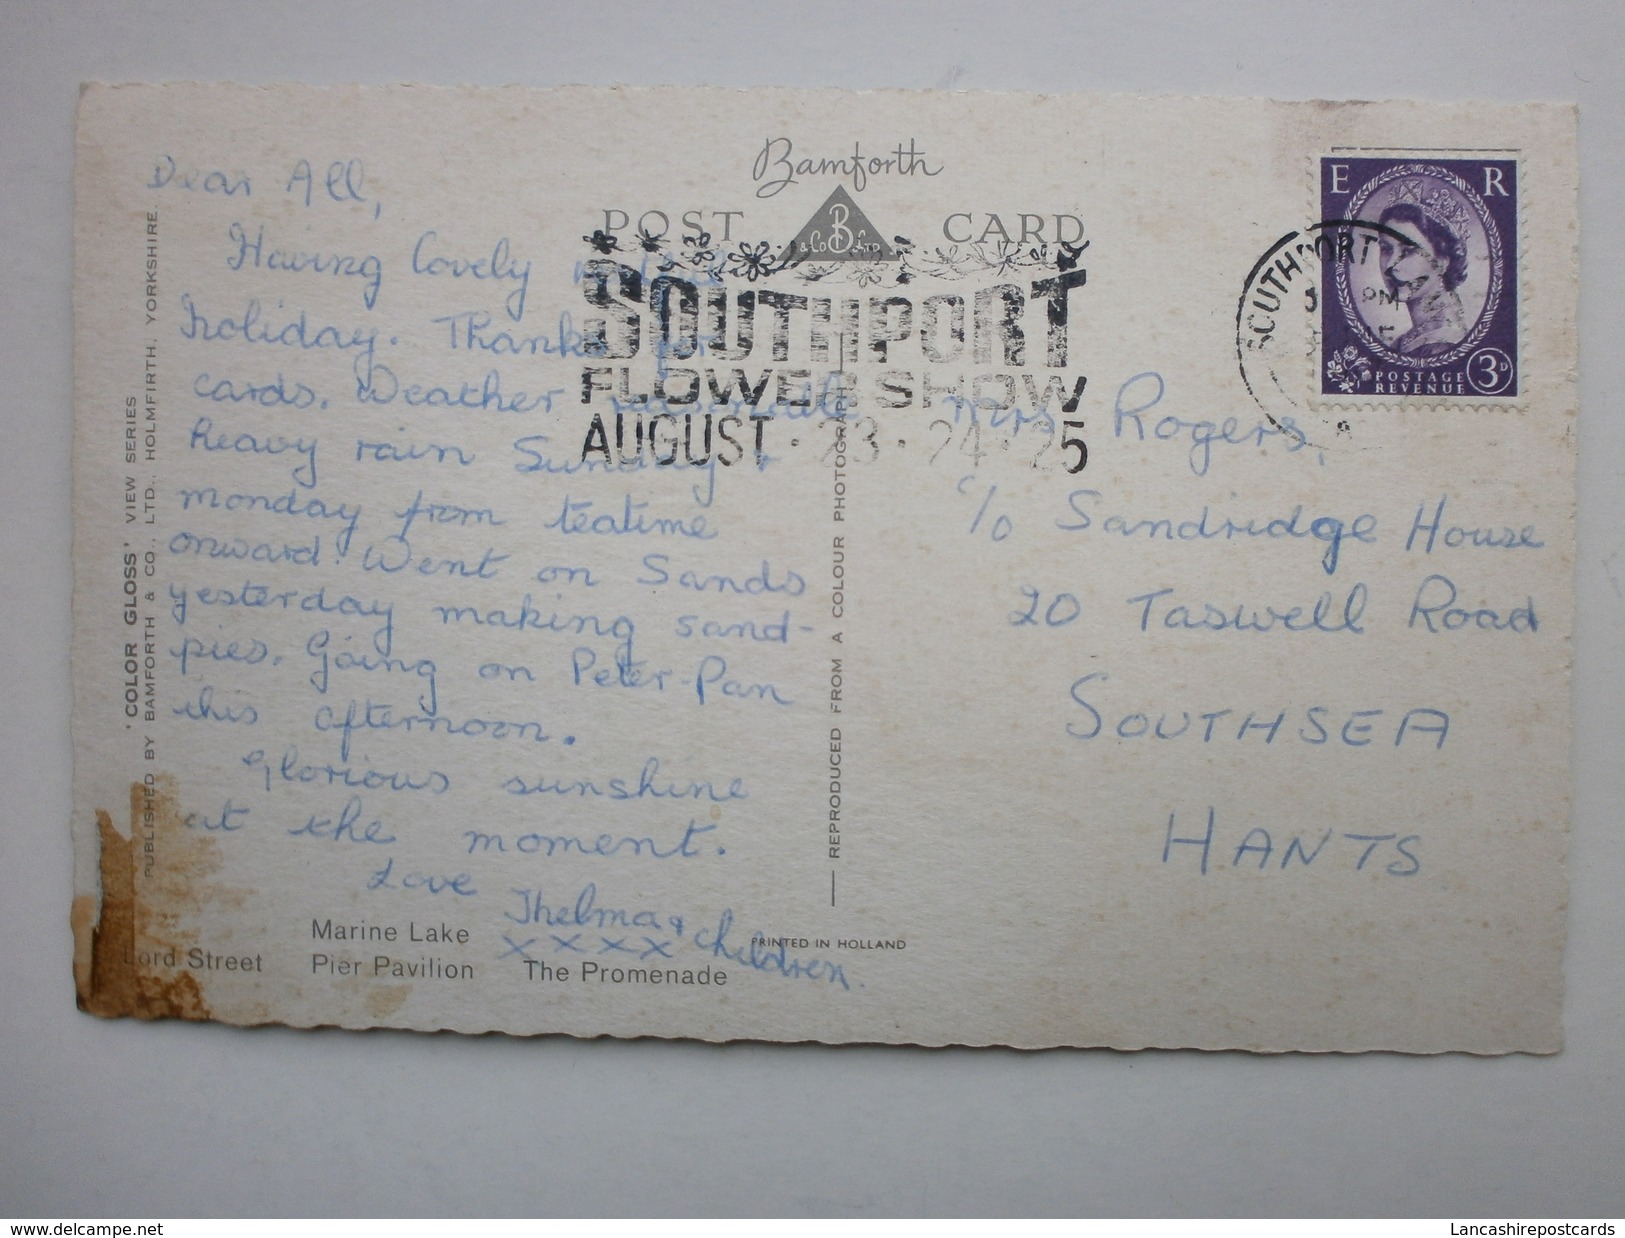 Bamforth
POST CARD
& Co B LTD
SOUTHPORT
FLOWER SHOW
AUGUST · 23 · 24 · 25
E R
POSTAGE
REVENUE
3D
SOUTHPORT LANCS
PM
Dear All,
Having lovely
holiday. Thanks for
cards. Weather
heavy rain Sunday +
monday from teatime
onward. Went on Sands
yesterday making sand-
pies. Going on Peter-Pan
this afternoon.
Glorious sunshine
at the moment.
Love
Thelma & children.
x x x x
Mrs Rogers,
c/o Sandridge House
20 Taswell Road
SOUTHSEA
HANTS
'COLOR GLOSS' VIEW SERIES
PUBLISHED BY BAMFORTH & CO., LTD., HOLMFIRTH, YORKSHIRE.
REPRODUCED FROM A COLOUR PHOTOGRAPH
Marine Lake
Lord Street Pier Pavilion The Promenade
PRINTED IN HOLLAND
Lancashirepostcards
delcampe.net